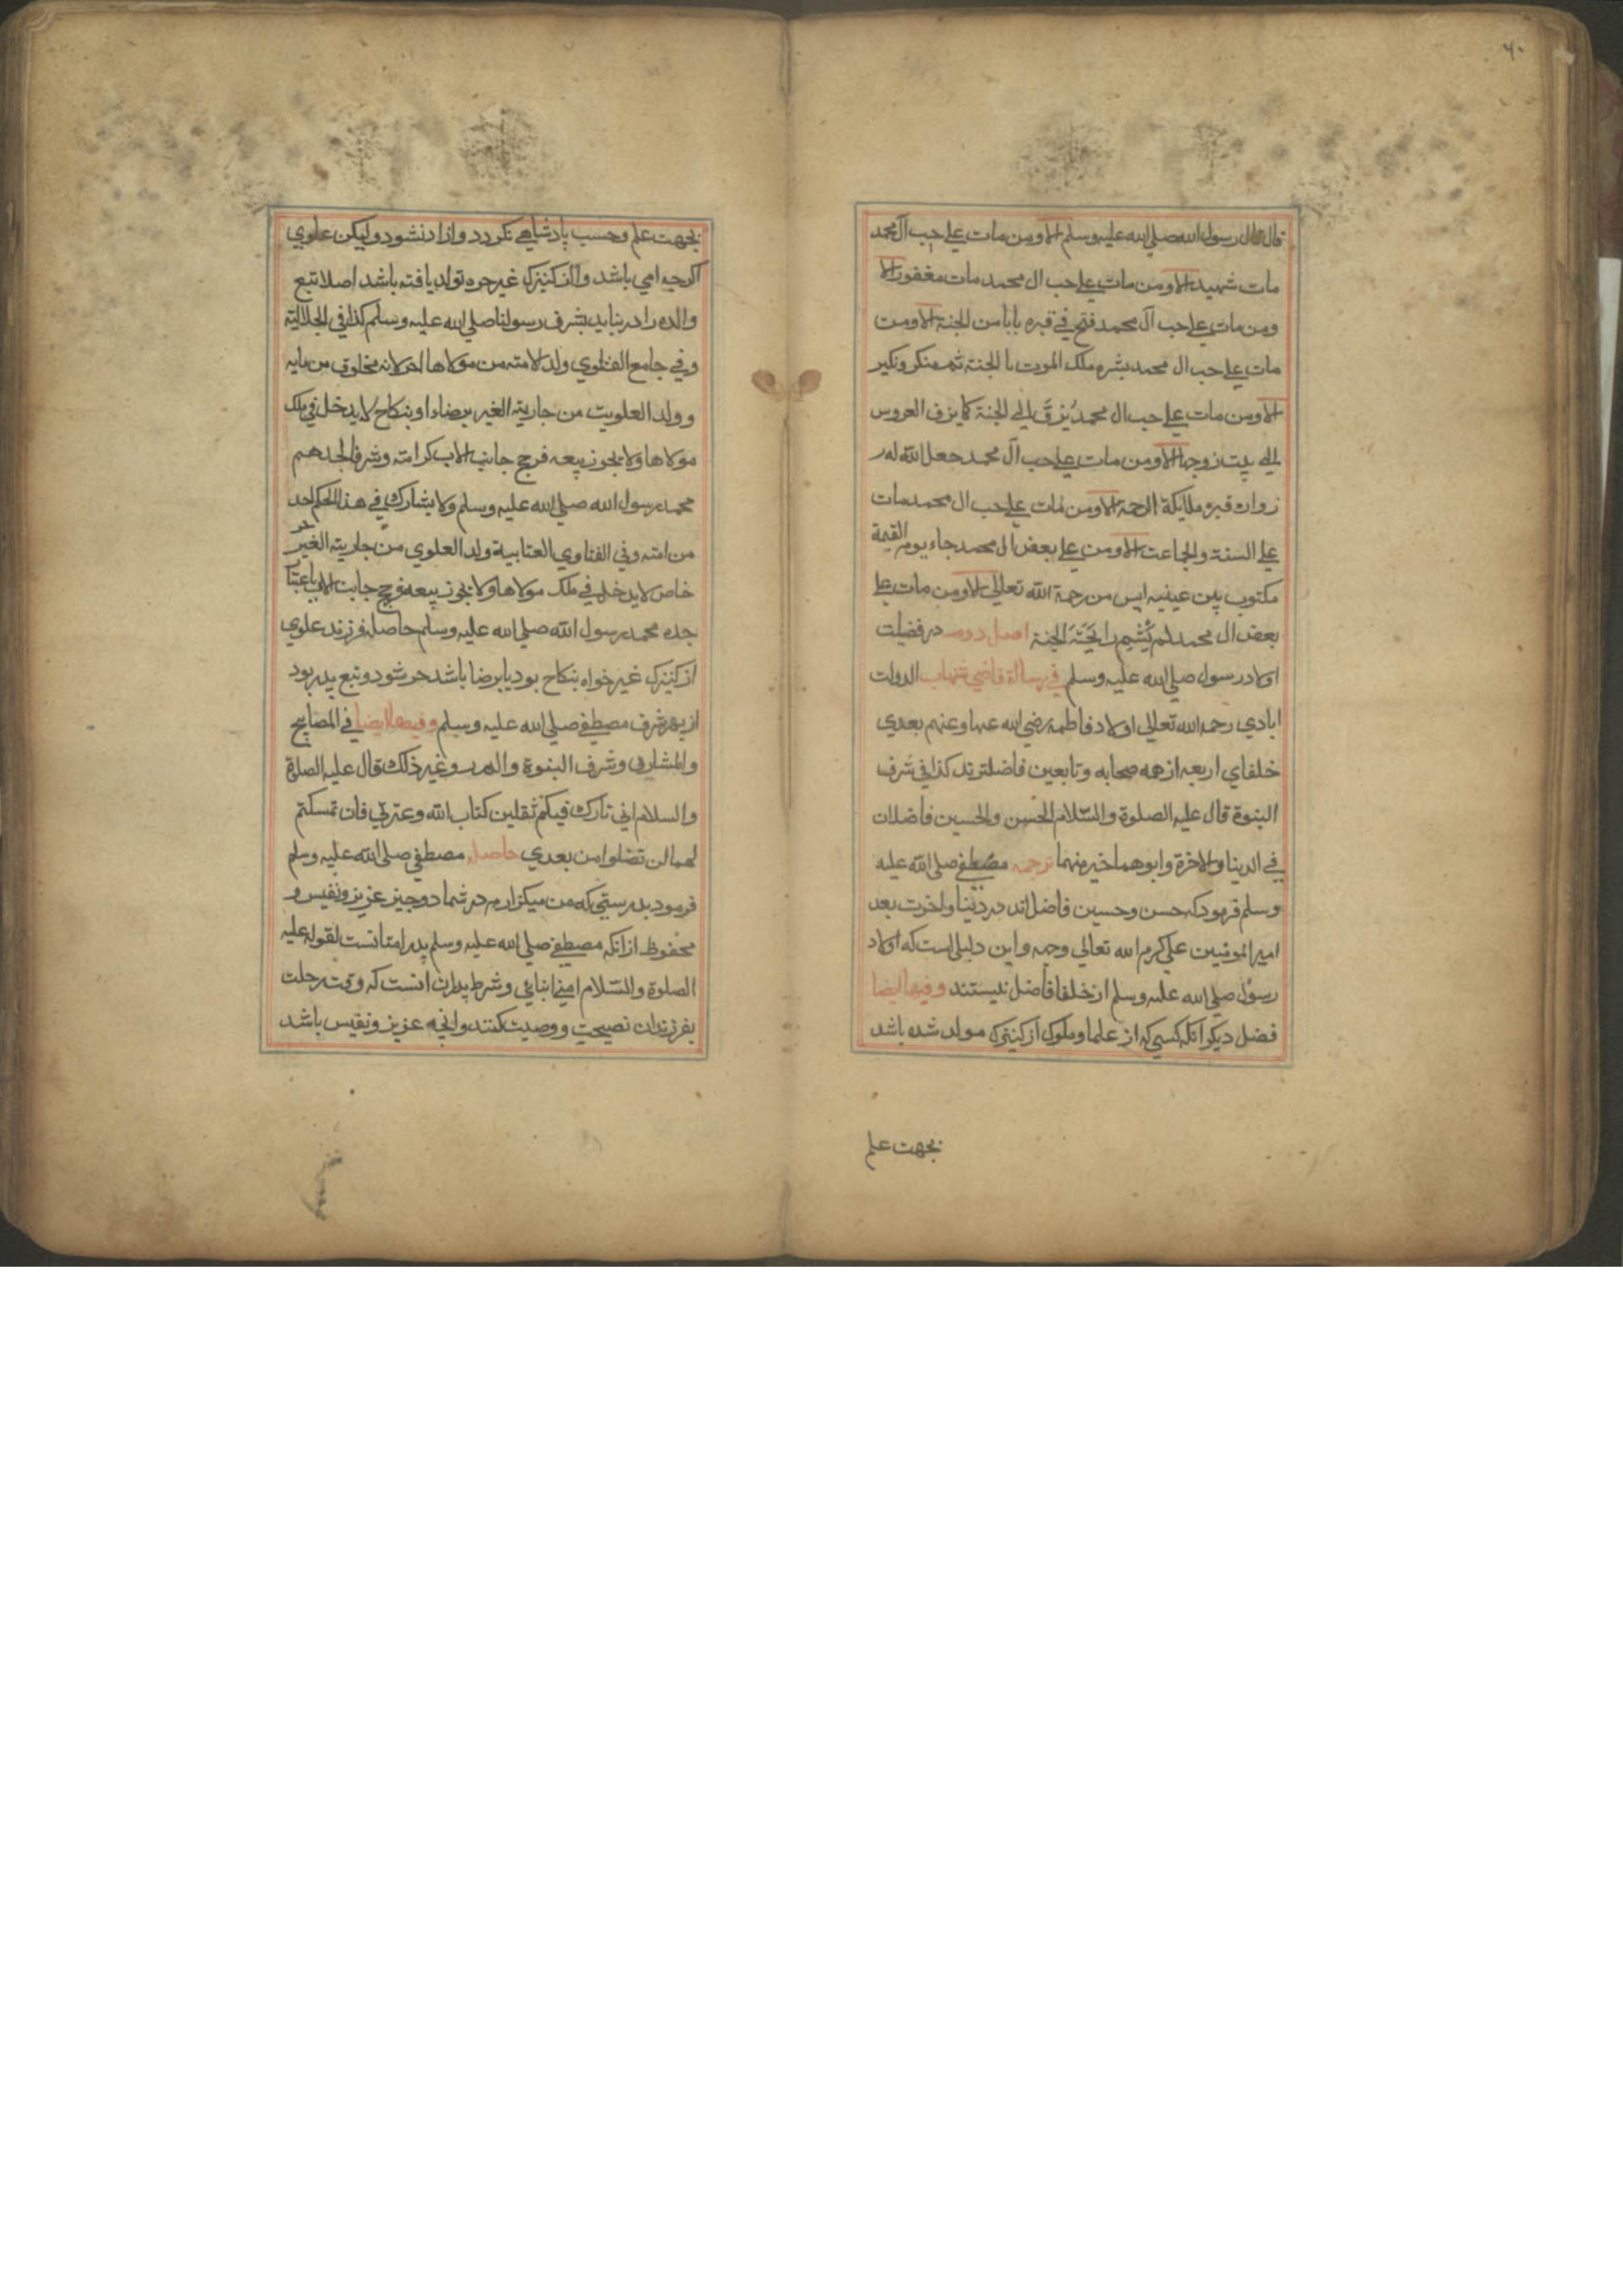 ٦٠
قال قال رسول الله صلي الله عليه وسلم الا ومن مات علي حب آل محمد
مات شهيد الا ومن مات علي حب ال محمد مات مغفور الا
ومن مات علي حب آل محمد فتح في قبره بابا من الجنة الا ومن
مات علي حب ال محمد بشره ملك الموت با الجنة ثم منكر ونكير
الا ومن مات علي حب ال محمد يُزفَّ الي الجنة كما يزف العروس
الي بيت زوجها الا ومن مات علي حب آل محمد جعل الله له
زوار قبره ملايكة الرحمة الا ومن مات علي حب ال محمد مات
علي السنة والجماعت الا ومن علي بعض ال محمد جاء يوم القيمة
مكتوب بين عينيه ايس من رحمة الله تعالي الا ومن مات علي
بعض ال محمد لم يُشَيم رايَحَتَه الجنة اصل دوم در فضيلت
اولاد رسول صلي الله عليه وسلم في رسالة قاضي شهاب الدولت
ابادي رحمه الله تعالي اولاد فاطمه رضي الله عنها وعنهم بعدي
خلفاي اربعه از همه صحابه وتابعين فاضلترند كذا في شرف
النبوة قال عليه الصلوة والسّلام الحسن والحسين فاضلان
في الدينا والاخرة وابوهما خير منهما ترجمه مصطفي صلي الله عليه
وسلم فرمود كه حسن وحسين فاضل اند در دنيا واخرت بعد
امير المومنين علي كرم الله تعالي وجهه واين دليلي است كه اولاد
رسول صلي الله عليه وسلم از خلفا فاضل نيستند وفيها ايضا
فضل ديكر آنكه كسي كه از علما وملوك از كنيزك مولد شده باشد
بجهت علم
بجهت علم وحسب پادشاهي نكردد وازاد نشود وليكن علوي
اكرچه امي باشد وآن كنيزك غير حره تولد يافته باشد اصلا تبع
والده را در نيايد بشرف رسولنا صلي الله عليه وسلم كذا في الجلاليّه
وفي جامع الفتاوي ولد الامته من مولاها الحر لانه مخلوق من مايه
وولد العلويت من جاريته الغير برضاء او بنكاح لا يدخل في ملك
مولاها ولا يجوز بيعه فرج جانب الاب كرامته وشرفا لجدهم
محمد رسول الله صلي الله عليه وسلم ولا يشارك في هذا الحكم احد
من امته وفي الفتاوي العتابية ولد العلوي من جاريته الغير حر
خاص لا يدخل في ملك مولاها ولا يجوز بيعه فرج جانب الاب باعتبا
جده محمد رسول الله صلي الله عليه وسلم حاصل فرزند علوي
از كنيزك غير خواه بنكاح بود يا برضا باشد حر شود وتبع پدر بود
از بهر شرف مصطفي صلي الله عليه وسلم وفيها ايضا في المصابيح
والمشارق وشرف النبوة والدرر وغير ذلك قال عليه الصلاة
والسلام اني تارك فيكم ثقلين كتاب الله وعترتي فان تمسكتم
لهما لن تضلوا من بعدي حاصل مصطفي صلي الله عليه وسلم
فرمود بدرستي كه من ميكزارم در شما دو چيز عزيز ونفيس و
محفوظ ازانكه مصطفي صلي الله عليه وسلم پدر امتانست لقوله عليه
الصلوة والسّلام امتي ابنايي وشرط پدران انست كه وقت رحلت
بفرزندان نصيحت ووصيت كنند وانچه عزيز ونفيس باشد